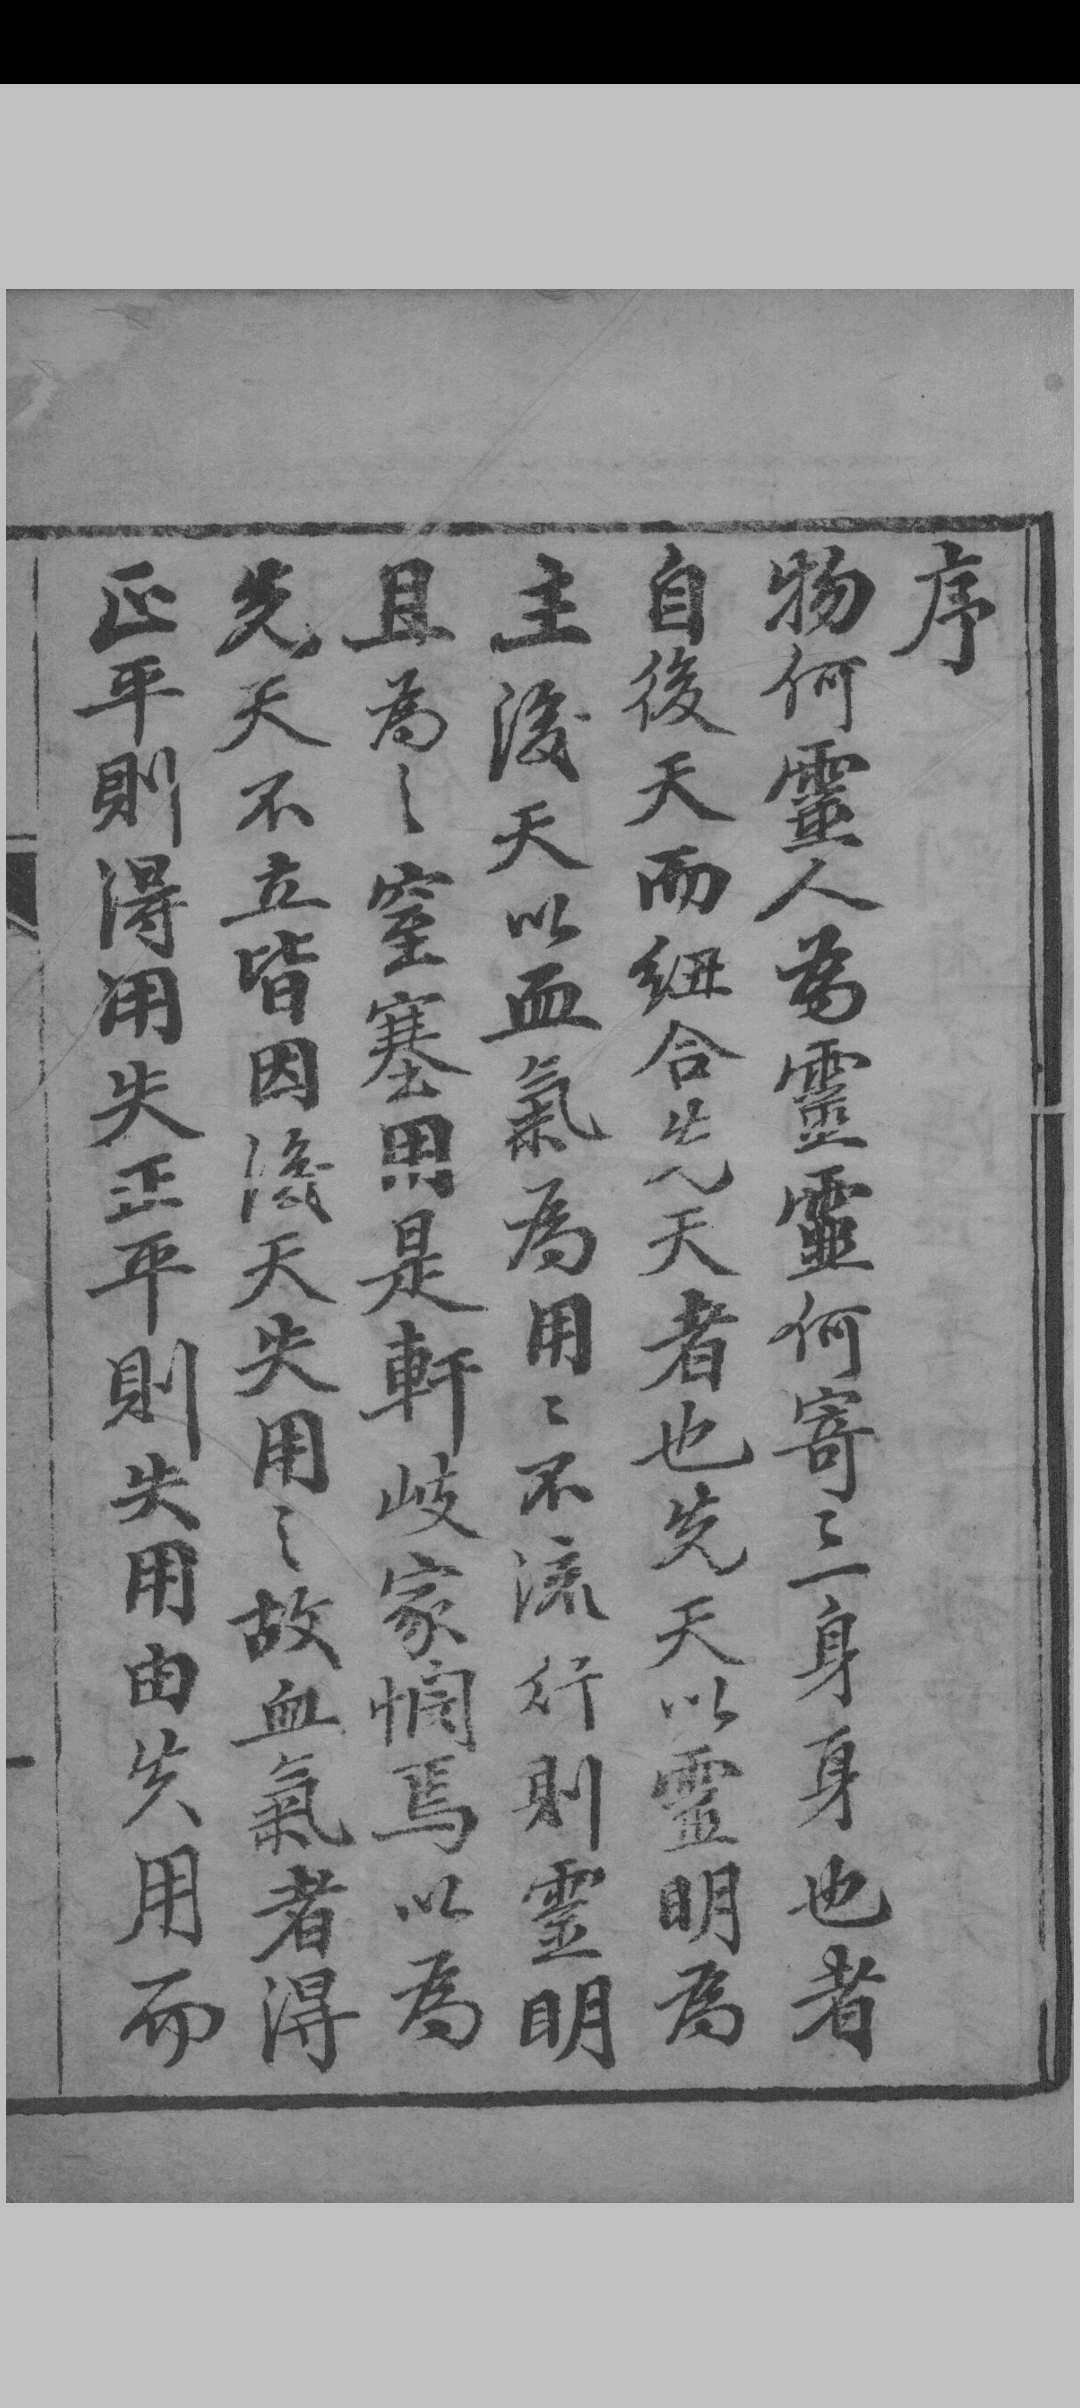 序
物何靈人為靈靈何寄〻三身身也者
自後天而紐合先天者也先天以靈明為
主後天以血氣為用〻不流行則靈明
且為之窒塞用是軒岐家憫焉以為
先天不立皆因後天失用之故血氣者得
正平則得用失正平則失用由失用而